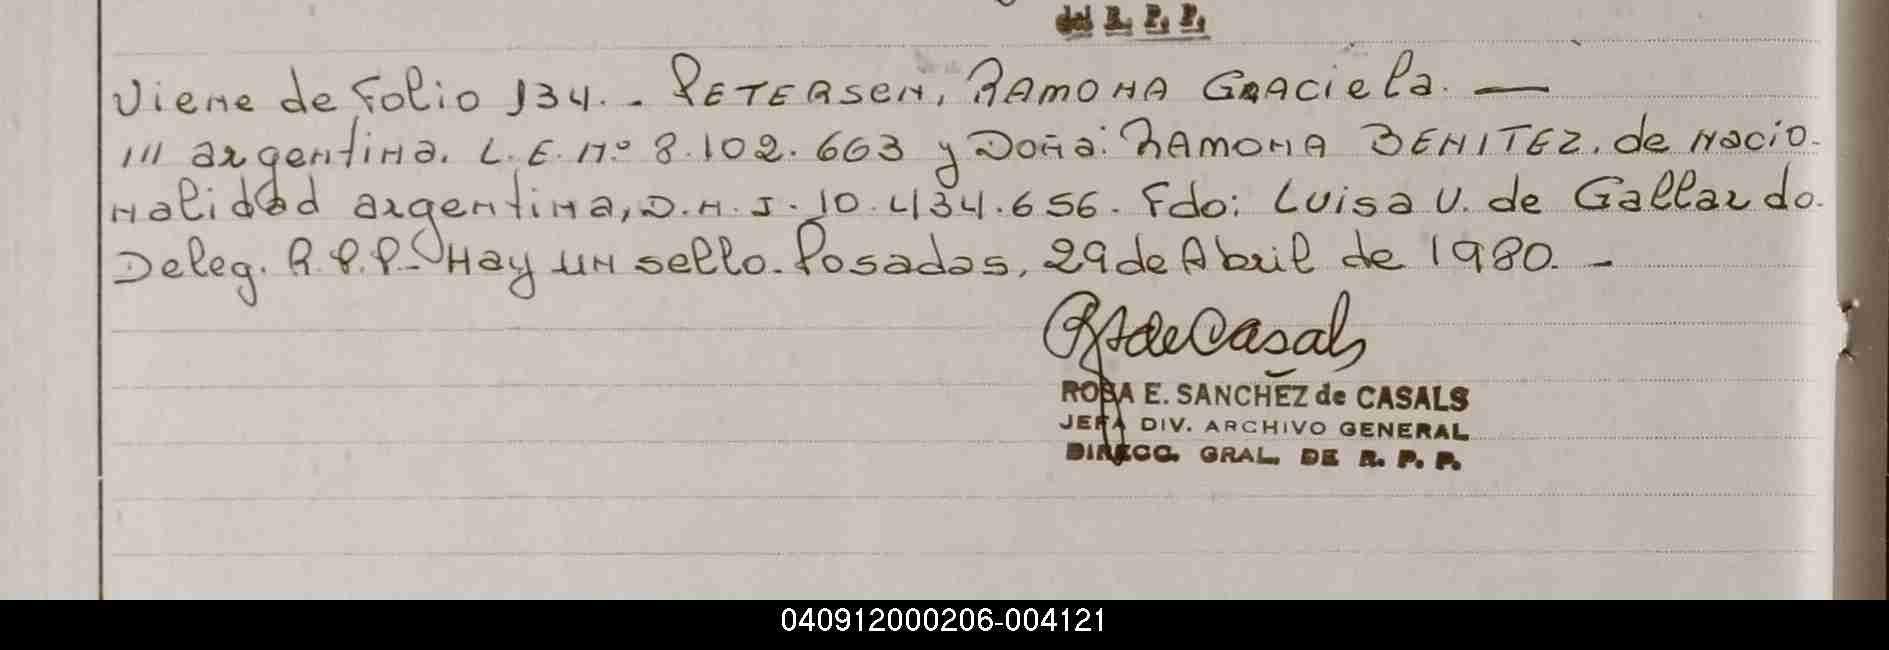 del R. P. P.
Viene de Folio 134. - PETERSEN, RAMONA GRACiela. —
/// argentina. L.E. Nº 8.102.663 y Doña: RAMONA BENITEZ. de nacio-
nalidad argentina, D.N.I. 10.434.656. Fdo: Luisa V. de Gallardo.
Deleg. R.P.P.- Hay un sello. Posadas, 29 de Abril de 1980. -
RSdeCasals
ROSA E. SANCHEZ de CASALS
JEFA DIV. ARCHIVO GENERAL
DIRECC. GRAL. DE R. P. P.
040912000206-004121